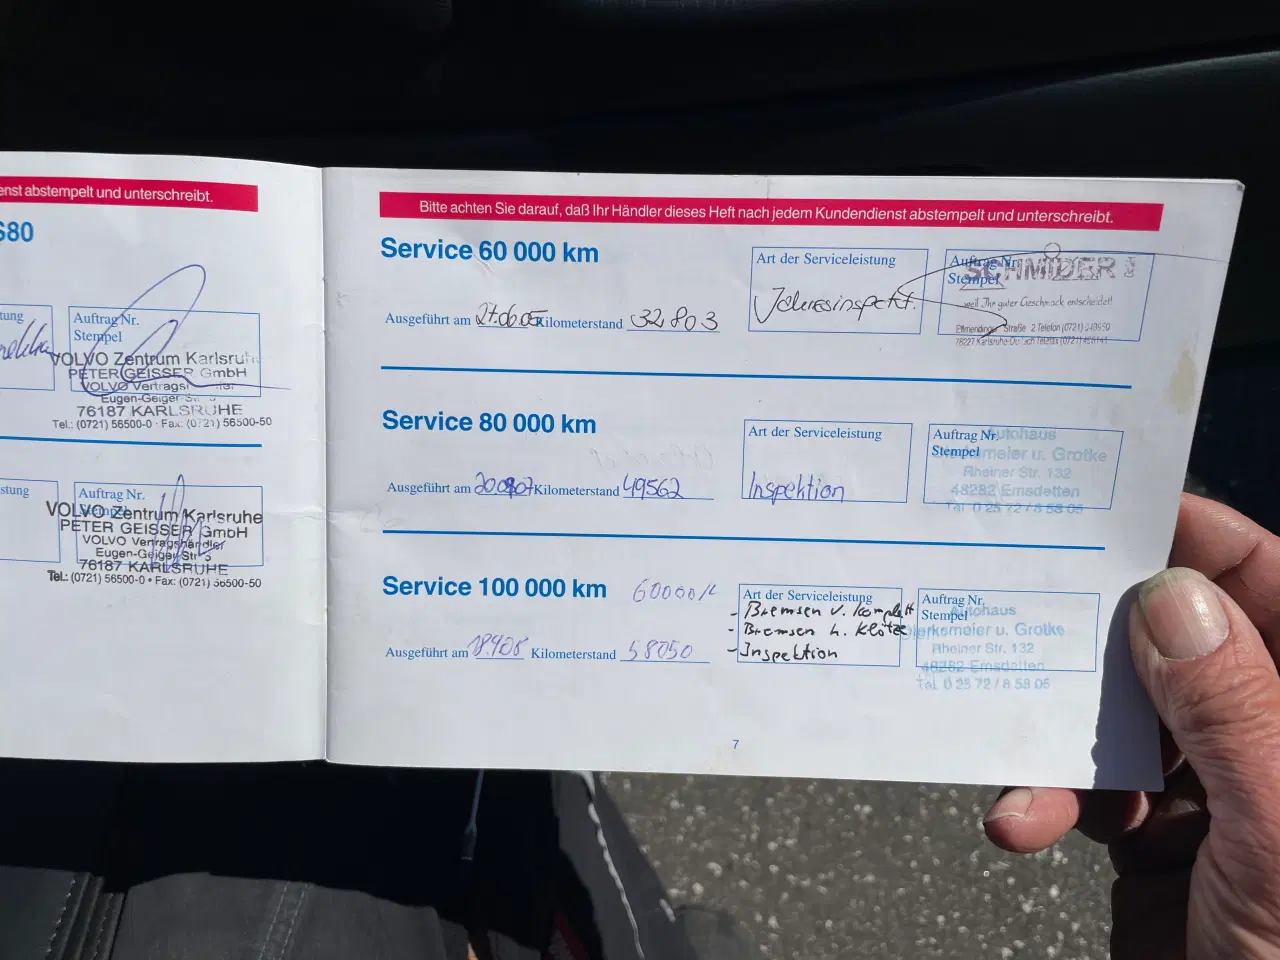 enst abstempelt und unterschreibt.
S80
tung
Auftrag Nr.
Stempel
VOLVO Zentrum Karlsruh
PETER GEISSER GmbH
VOLVO Vertrags
Eugen-Geiger-Str. 5
76187 KARLSRUHE
Tel.: (0721) 56500-0 · Fax: (0721) 56500-50
stung
Auftrag Nr.
Stempel
VOLVO Zentrum Karlsruhe
PETER GEISSER GmbH
VOLVO Vertragshändler
Eugen-Geiger-Str 5
76187 KARLSRUHE
Tel.: (0721) 56500-0 • Fax: (0721) 56500-50
Bitte achten Sie darauf, daß Ihr Händler dieses Heft nach jedem Kundendienst abstempelt und unterschreibt.
Service 60 000 km
Ausgeführt am 27.06.05 Kilometerstand 32803
Art der Serviceleistung
Jahresinspekt.
Auftrag Nr.
Stempel
SCHMIDER
weil Ihr guter Geschmack entscheidet!
Straße 2 Telefon (0721)
Service 80 000 km
Ausgeführt am Kilometerstand 49562
Art der Serviceleistung
Inspektion
Auftrag Nr.
Stempel
Autohaus
meier u. Grotke
Rheiner Str. 132
48282 Emsdetten
Tel. 0 25 72 / 8 58 05
Service 100 000 km 60000
Ausgeführt am Kilometerstand 58050
Art der Serviceleistung
- Bremsen v. komplett
- Bremsen h. Klötze
- Inspektion
Auftrag Nr.
Stempel
Autohaus
Dierksmeier u. Grotke
Rheiner Str. 132
48282 Emsdetten
Tel. 0 25 72 / 8 58 05
7